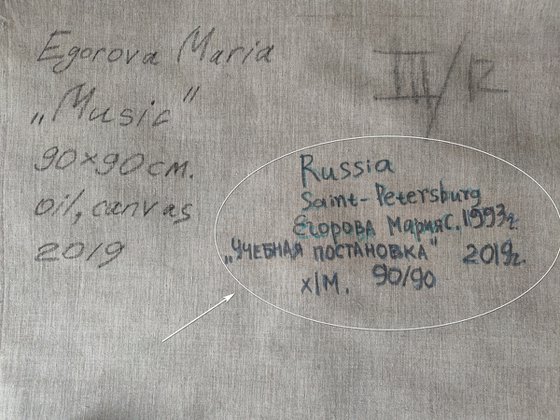 Egorova Maria
„Music"
90×90 см.
oil, canvas
2019
III/12
Russia
Saint-Petersburg
Егорова Мария С. 1993г.
„УЧЕБНАЯ ПОСТАНОВКА" 2019г.
х/м. 90/90